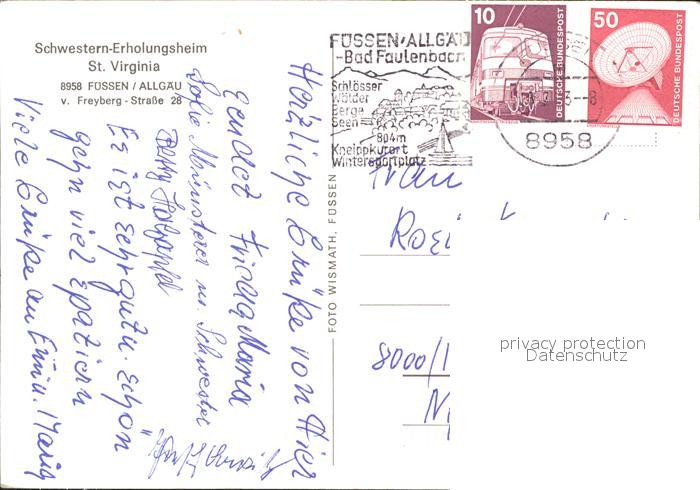 Schwestern-Erholungsheim
St. Virginia
8958 FÜSSEN / ALLGÄU
v. Freyberg-Straße 28
FÜSSEN/ALLGÄU
-Bad Faulenbach
Schlösser
Wälder
Berge
Seen
804m
Kneippkurort
Wintersportplatz
10
DEUTSCHE BUNDESPOST
50
DEUTSCHE BUNDESPOST
8958
FOTO WISMATH, FÜSSEN
Herzliche Grüße von Hier
sendet Frieda Maria
u. Schwester
Es ist sehr gut u. schön
gehn viel spatiern
Viele Grüße an Emmi u. Maria
Frau
8000/
privacy protection
Datenschutz